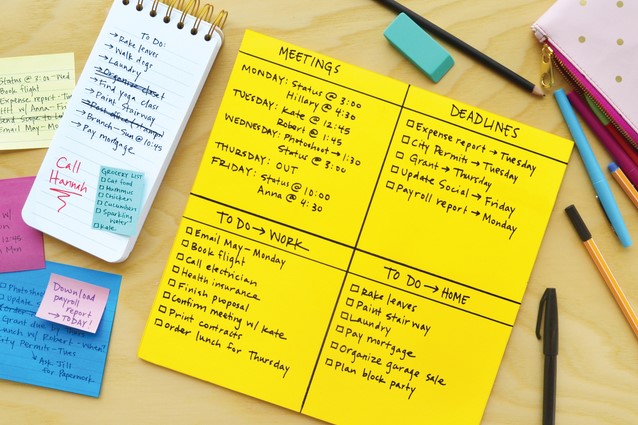 Status @ 3:00-Wed
Book flight
Expense report-Tues
w/ Anna-Fri
Email May-Mon
TO DO:
→Rake leaves
→Walk dogs
→Laundry
→Organize closet
→Find yoga class
→Paint Stairway
→Branch-Sun @ 10:45
→Pay mortgage
Call
Hannah
GROCERY LIST
Cat food
Hummus
Chicken
Cucumbers
Sparkling
water
Kale
w/
12:45
Mon
Photosh
Update
Download
payroll
report
→TODAY!
Grant due
Lunch w/ Robert-when?
City Permit-Tues
Ask Jill
for Paperwork
MEETINGS
MONDAY: Status @ 3:00
Hillary @ 4:30
TUESDAY: Kate @ 12:45
Robert @ 1:45
WEDNESDAY: Photoshoot→1:30
Status @ 3:00
THURSDAY: OUT
FRIDAY: Status @ 10:00
Anna @ 4:30
DEADLINES
Expense report→Tuesday
City Permit→Tuesday
Grant→Thursday
Update Social→Friday
Payroll report→Monday
TO DO→WORK
Email May-Monday
Book flight
Call electrician
Health insurance
Finish proposal
Confirm meeting w/ Kate
Print contracts
Order lunch for Thursday
TO DO→HOME
Rake leaves
Paint stairway
Laundry
Pay mortgage
Organize garage sale
Plan block party